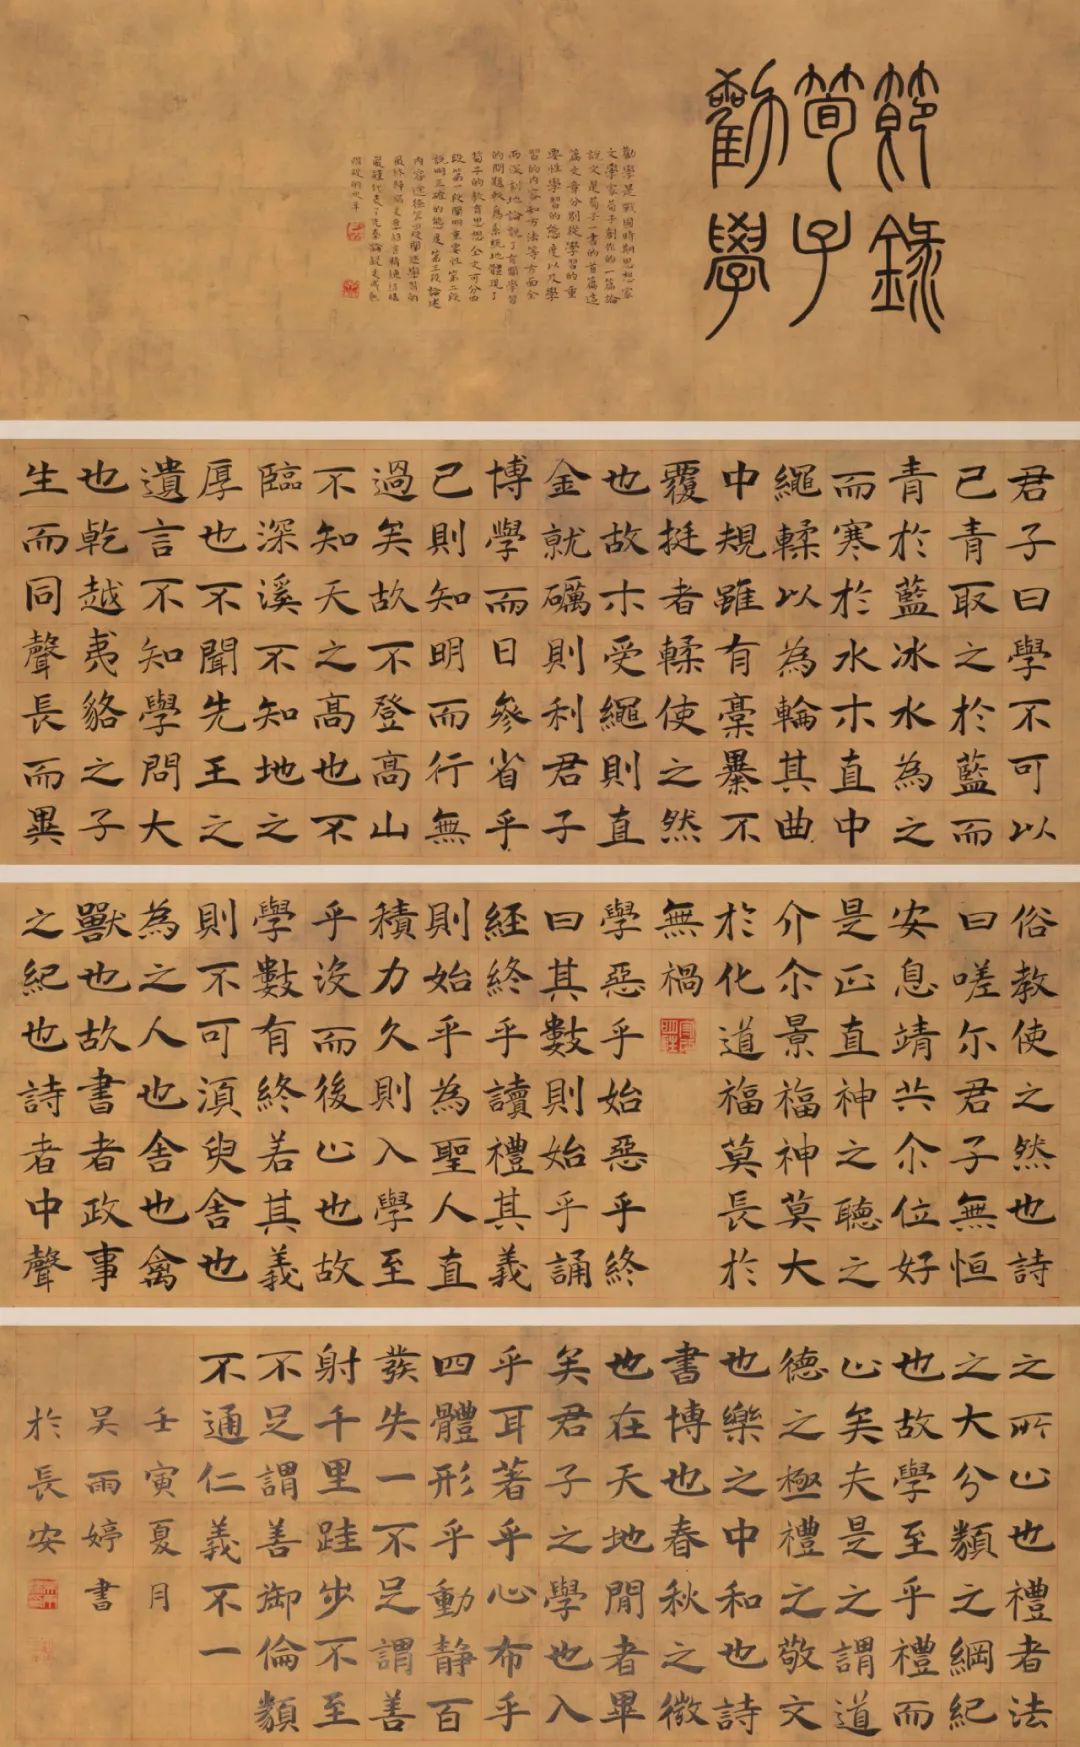 節錄
荀子
勸學
勸學是戰國時期思想家
文學家荀子創作的一篇論
說文是荀子一書的首篇這
篇文章分別從學習的重
要性學習的態度以及學
習的內容和方法等方面全
而深刻地論說了有關學習
的問題較為系統地體現了
荀子的教育思想全文可分四
段第一段闡明重要性第二段
說明正確的態度第三段論述
內容途徑第四段闡述學習的
君子曰學不可以
已青取之於藍而
青於藍冰水為之
而寒於水木直中
繩輮以為輪其曲
中規雖有槀暴不
覆挺者輮使之然
也故木受繩則直
金就礪則利君子
博學而日參省乎
己則知明而行無
過矣故不登高山
不知天之高也不
臨深溪不知地之
厚也不聞先王之
遺言不知學問大
也乾越夷貉之子
生而同聲長而異
俗教使之然也詩
曰嗟尔君子無恒
安息靖共尒位好
是正直神之聽之
介尒景福神莫大
於化道福莫長於
無禍
學惡乎始惡乎終
曰其數則始乎誦
經終乎讀禮其義
則始乎為聖人直
積力久則入學至
乎沒而後止也故
學數有終若其義
則不可須臾舍也
為之人也舍也禽
獸也故書者政事
之紀也詩者中聲
之所止也禮者法
之大分類之綱紀
也故學至乎禮而
止矣夫是之謂道
德之極禮之敬文
也樂之中和也詩
書博也春秋之微
也在天地間者畢
矣君子之學也入
乎耳著乎心布乎
四體形乎動靜百
發失一不足謂善
射千里跬步不至
不足謂善御倫類
不通仁義不一
壬寅夏月
吳雨婷書
於長安